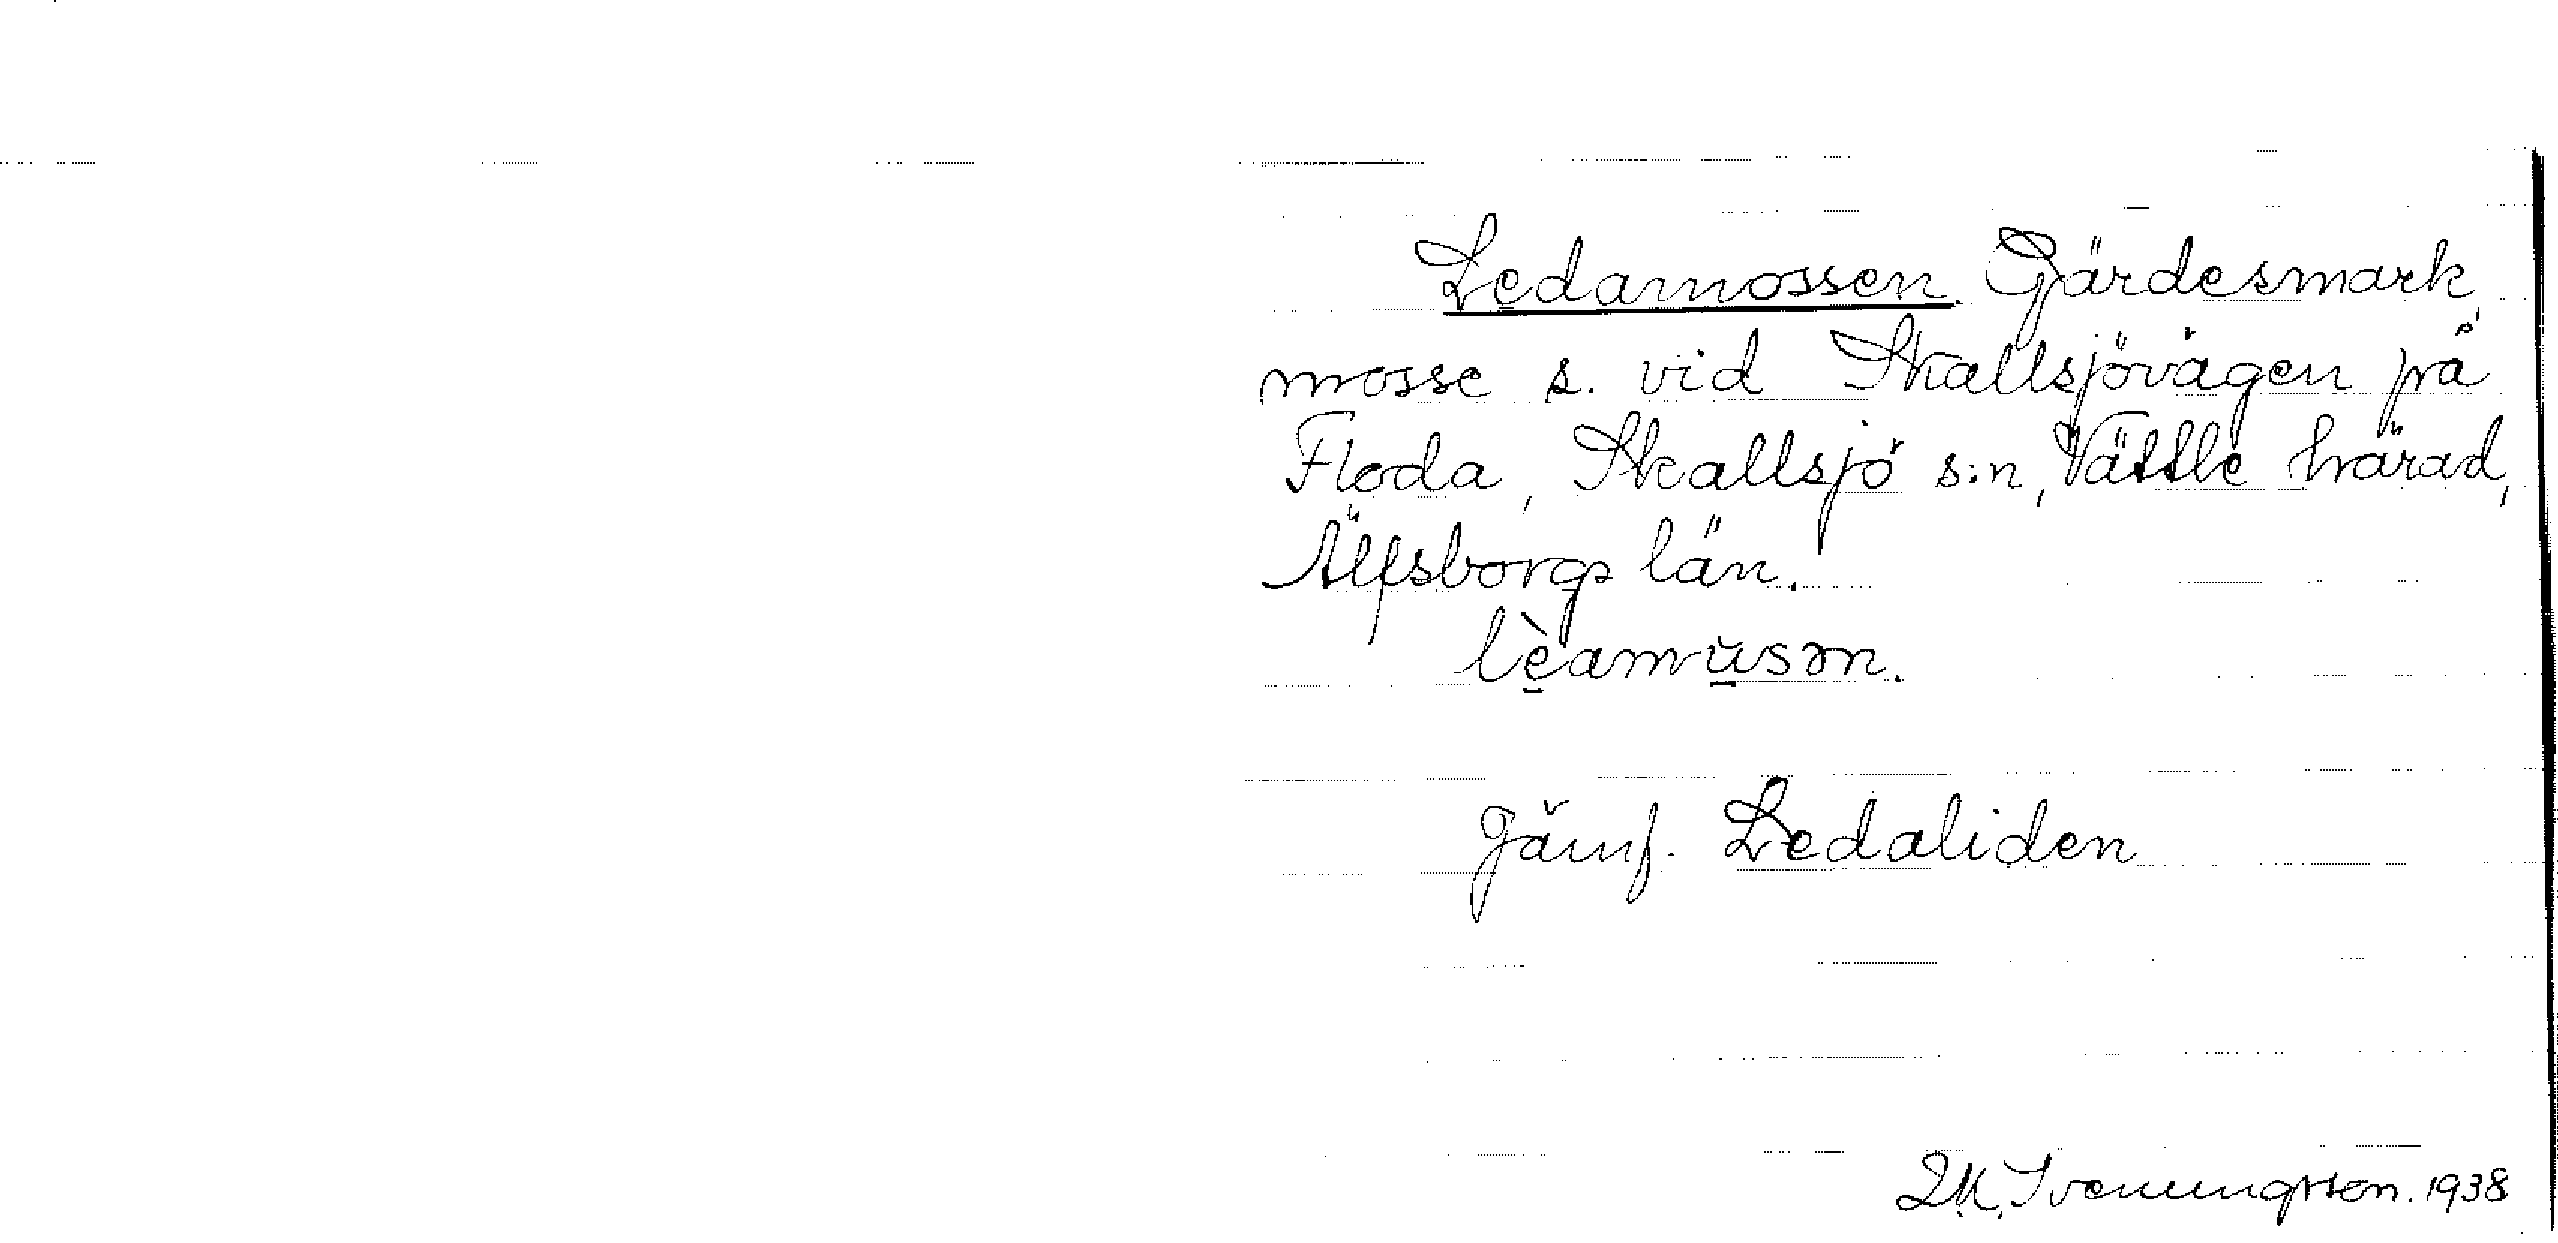 Ledamossen. Gärdesmark,
mosse s. vid Skallsjövägen på
Floda, Skallsjö s:n, Vättle härad,
Älfsborgs län.
lèamusən.
Jämf. Ledaliden
Svenungsson. 1938